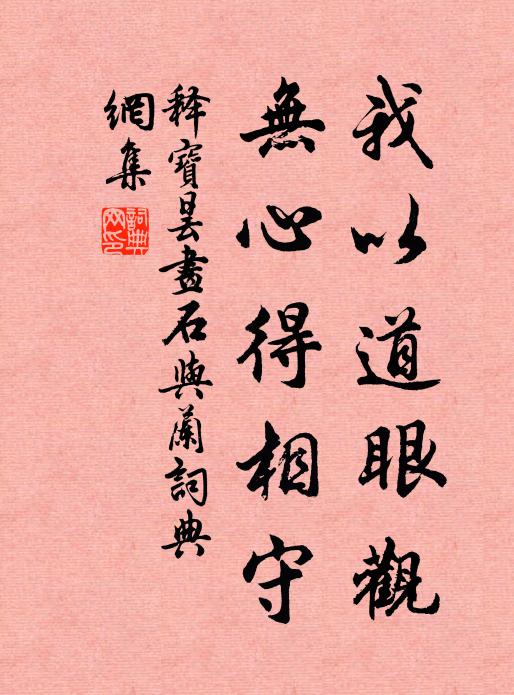 我以道眼觀
無心得相守
释寶昙畫石與蘭詞典
網集
詞典網印